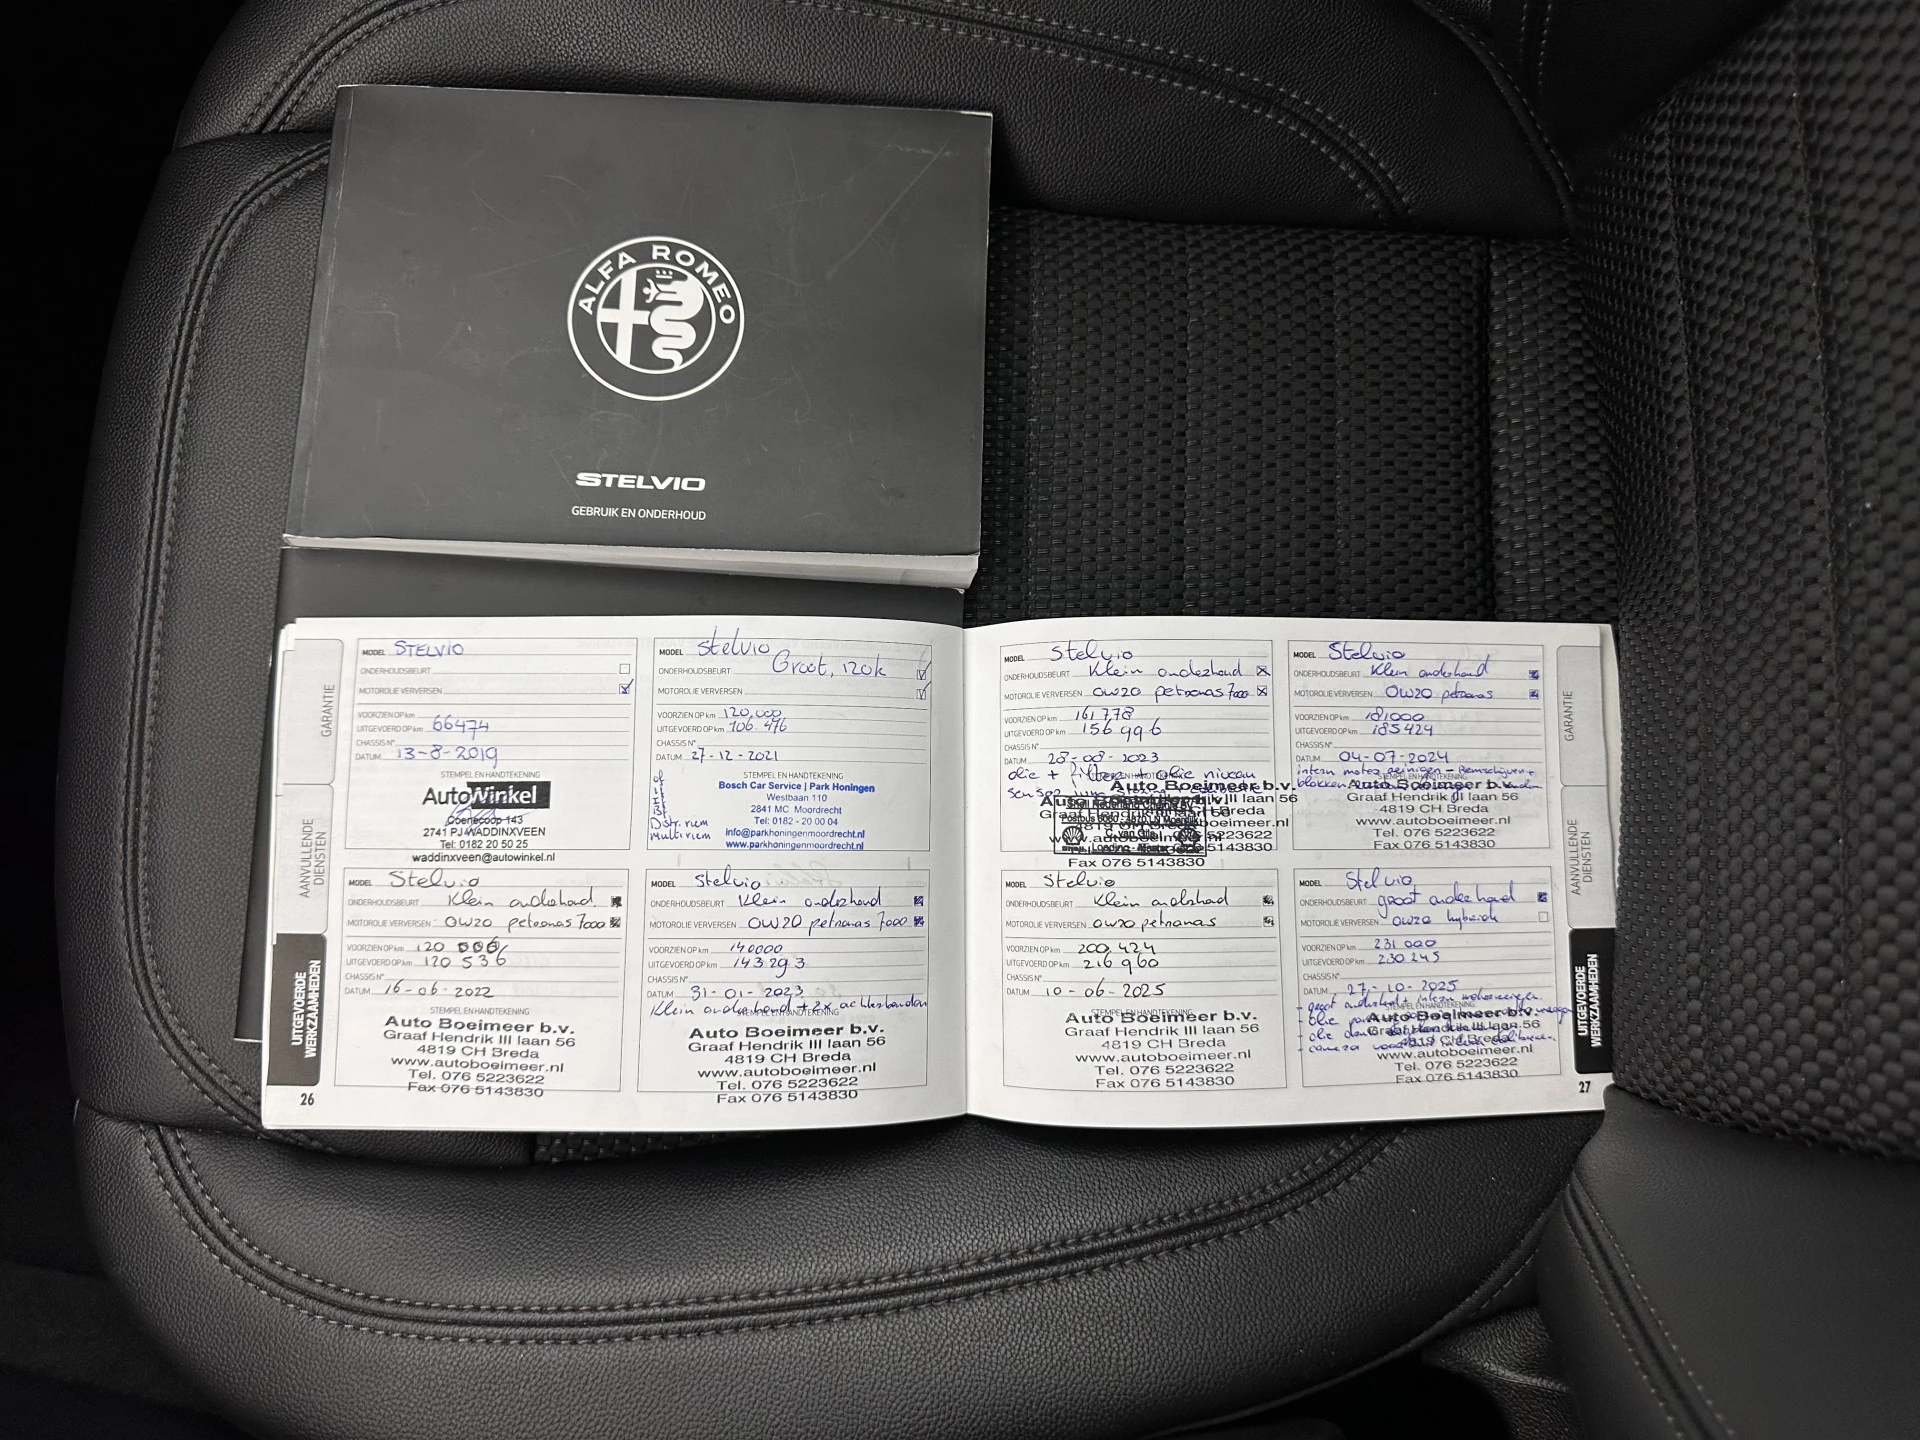 ALFA ROMEO
STELVIO
GEBRUIK EN ONDERHOUD
GARANTIE
AANVULLENDE DIENSTEN
UITGEVOERDE WERKZAAMHEDEN
MODEL STELVIO
ONDERHOUDSBEURT
MOTOROLIE VERVERSEN
VOORZIEN OP km
UITGEVOERD OP km 66474
CHASSIS N°
DATUM 13-8-2019
STEMPEL EN HANDTEKENING
AutoWinkel
Coenecoop 143
2741 PJ WADDINXVEEN
Tel: 0182 20 50 25
waddinxveen@autowinkel.nl
MODEL Stelvio
ONDERHOUDSBEURT Groot, 120k
MOTOROLIE VERVERSEN
VOORZIEN OP km 120.000
UITGEVOERD OP km 106 476
CHASSIS N°
DATUM 27-12-2021
STEMPEL EN HANDTEKENING
Bosch Car Service | Park Honingen
Westbaan 110
2841 MC Moordrecht
Tel: 0182 - 20 00 04
info@parkhoningenmoordrecht.nl
www.parkhoningenmoordrecht.nl
Distr. riem
Multiriem
MODEL Stelvio
ONDERHOUDSBEURT Klein onderhoud
MOTOROLIE VERVERSEN 0W20 petronas 7000
VOORZIEN OP km 120
UITGEVOERD OP km 120 536
CHASSIS N°
DATUM 16-06-2022
STEMPEL EN HANDTEKENING
Auto Boeimeer b.v.
Graaf Hendrik III laan 56
4819 CH Breda
www.autoboeimeer.nl
Tel. 076 5223622
Fax 076 5143830
26
MODEL Stelvio
ONDERHOUDSBEURT Klein onderhoud
MOTOROLIE VERVERSEN 0W20 petronas 7000
VOORZIEN OP km 140000
UITGEVOERD OP km 143293
CHASSIS N°
DATUM 31-01-2023
Klein onderhoud + 2x achterbanden
STEMPEL EN HANDTEKENING
Auto Boeimeer b.v.
Graaf Hendrik III laan 56
4819 CH Breda
www.autoboeimeer.nl
Tel. 076 5223622
Fax 076 5143830
MODEL Stelvio
ONDERHOUDSBEURT Klein onderhoud
MOTOROLIE VERVERSEN 0W20 petronas 7000
VOORZIEN OP km 161 778
UITGEVOERD OP km 156 996
CHASSIS N°
DATUM 28-08-2023
olie + filter + olie niveau
sensor
Auto Boeimeer b.v.
Graaf Hendrik III laan 56
4819 CH Breda
www.autoboeimeer.nl
Fax 076 5143830
MODEL Stelvio
ONDERHOUDSBEURT Klein onderhoud
MOTOROLIE VERVERSEN 0W20 petronas
VOORZIEN OP km 181000
UITGEVOERD OP km 185424
CHASSIS N°
DATUM 04-07-2024
intern motor reinigen - Remschijven +
blokken
Auto Boeimeer b.v.
Graaf Hendrik III laan 56
4819 CH Breda
www.autoboeimeer.nl
Tel. 076 5223622
Fax 076 5143830
MODEL Stelvio
ONDERHOUDSBEURT Klein onderhoud
MOTOROLIE VERVERSEN 0W20 petronas
VOORZIEN OP km 200.424
UITGEVOERD OP km 216 960
CHASSIS N°
DATUM 10-06-2025
STEMPEL EN HANDTEKENING
Auto Boeimeer b.v.
Graaf Hendrik III laan 56
4819 CH Breda
www.autoboeimeer.nl
Tel. 076 5223622
Fax 076 5143830
MODEL Stelvio
ONDERHOUDSBEURT groot onderhoud
MOTOROLIE VERVERSEN 0W20 hybride
VOORZIEN OP km 231 000
UITGEVOERD OP km 230 245
CHASSIS N°
DATUM 27-10-2025
- groot onderhoud + intern
- olie
- olie
- camera
Auto Boeimeer b.v.
Graaf Hendrik III laan 56
4819 CH Breda
www.autoboeimeer.nl
Tel. 076 5223622
Fax 076 5143830
GARANTIE
AANVULLENDE DIENSTEN
UITGEVOERDE WERKZAAMHEDEN
27